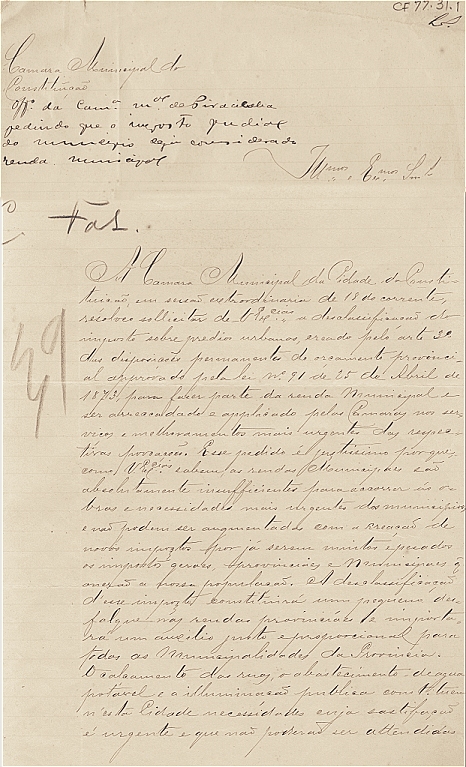 CF 77.31.1
Camara Municipal da
Constituição
Off.º da Cam.ª M.al de Piracicaba
pedindo que o imposto predial
do municipio seja considerado
renda municipal
Illmos e Exmos Snrs
Faz.
A Camara Municipal da Cidade da Consti-
tuição, em sessão extraordinaria de 18 do corrente,
resolveo sollicitar de VExcias a desclassificação do
imposto sobre predios urbanos, creado pelo artº 3º
das disposições permanentes do orçamento provinci-
al approvado pela lei nº 91 de 25 de Abril de
1873 para fazer parte da renda Municipal e
ser arrecadado e applicado pelas Camaras nos ser-
viços e melhoramentos mais urgentes das respec-
tivas povoações. Esse pedido é justissimo porque,
como VExcias sabem, as rendas Municipaes são
absolutamente insufficientes para accorrer ás o-
bras e necessidades mais urgentes dos municipios,
e não podem ser augmentadas com a creação de
novos impostos por já serem muitos e pesados
os impostos geraes, provinciaes e Municipaes q
onerão a nossa população. A desclassificação
d'esse imposto constituirá um pequeno des-
falque nas rendas provinciaes e importa-
rá um auxilio justo e proporcional para
todas as Municipalidades da Provincia.
O calçamento das ruas, o abastecimento de agua
potavel e a illuminação publica constituem
n'esta Cidade necessidades cuja satisfação
é urgente e que não poderão ser attendidas